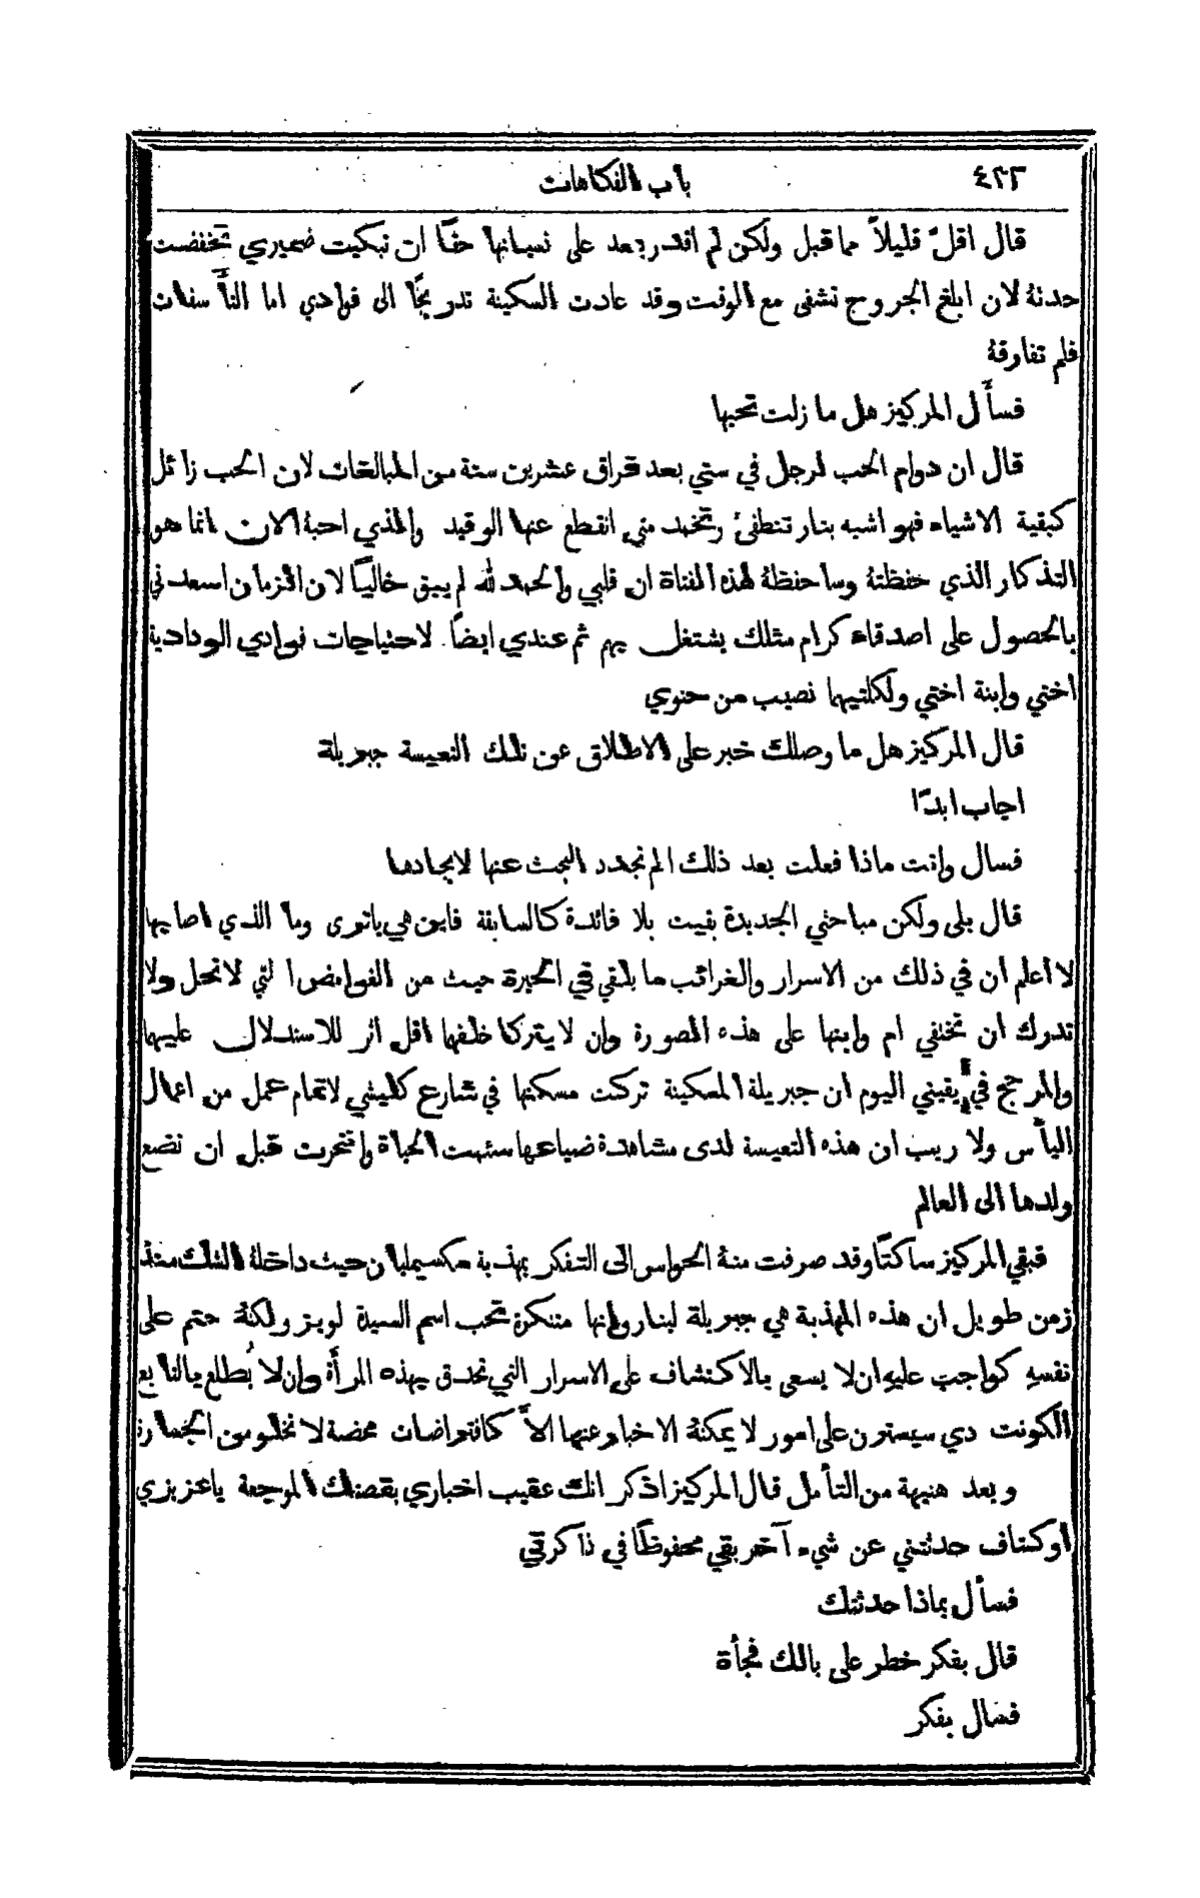 ٤٢٢ باب الفكاهات
قال اقلّ قليلاً مما قبل ولكن لم اقدر بعد على نسيانها حقًا ان تبكيت ضميري تخفضت
حدتهُ لان ابلغ الجروح تشفى مع الوقت وقد عادت السكينة تدريجًا الى فوادي اما التأسفات
فلم تفارقهُ
فسأَل المركيز هل ما زلت تحبها
قال ان دوام الحب لرجل في سني بعد فراق عشرين سنة من المبالغات لان الحب زائل
كبقية الاشياء فهو اشبه بنار تنطفئ وتخمد متى انقطع عنها الوقيد والذي احبهُ الان انما هو
التذكار الذي حفظتهُ وساحفظهُ لهذه الفتاة ان قلبي والحمد لله لم يبق خاليًا لان الزمان اسعدني
بالحصول على اصدقاء كرام مثلك يشتغل بهم ثم عندي ايضًا لاحتياجات فوادي الودادية
اختي وابنة اختي ولكلتيهما نصيب من حنوي
قال المركيز هل ما وصلك خبر على الاطلاق عن تلك التعيسة جبريلة
اجاب ابدًا
فسال وانت ماذا فعلت بعد ذلك الم تجدد البحث عنها لايجادها
قال بلى ولكن مباحثي الجديدة بقيت بلا فائدة كالسابقة فاين هي ياترى وما الذي اصابها
لا اعلم ان في ذلك من الاسرار والغرائب ما يلقي في الحيرة حيث من الغوامض التي لا تحل ولا
تدرك ان تختفي ام وابنها على هذه الصورة وان لا يتركا خلفها اقل اثر للاستدلال عليهما
والمرجح في يقيني اليوم ان جبريلة المسكينة تركت مسكنها في شارع كليشي لاتمام عمل من اعمال
اليأس ولا ريب ان هذه التعيسة لدى مشاهدة ضياعها سئمت الحياة وانتحرت قبل ان تضع
ولدها الى العالم
فبقي المركيز ساكتًا وقد صرفت منهُ الحواس الى التفكر بمهذبة مكسيمليان حيث داخلهُ الشك منذ
زمن طويل ان هذه المهذبة هي جبريلة لينار وانها متنكرة تحب اسم السيدة لويز ولكنهُ حتم على
نفسهِ كواجب عليهِ ان لا يسعى بالاكتشاف على الاسرار التي تحدق بهذه المرأَة وان لا يُطلع بالتابع
الكونت دي سيسترن على امور لا يمكنهُ الاخبار عنها الاَّ كافتراضات محضة لا تخلو من الخسارة
وبعد هنيهة من التأمل قال المركيز اذكر انك عقيب اخباري بقصتك الموجعة ياعزيزي
اوكتاف حدثتني عن شيء آخر بقي محفوظًا في ذاكرتي
فسأل بماذا حدثتك
قال بفكر خطر على بالك فجأة
فسال بفكر